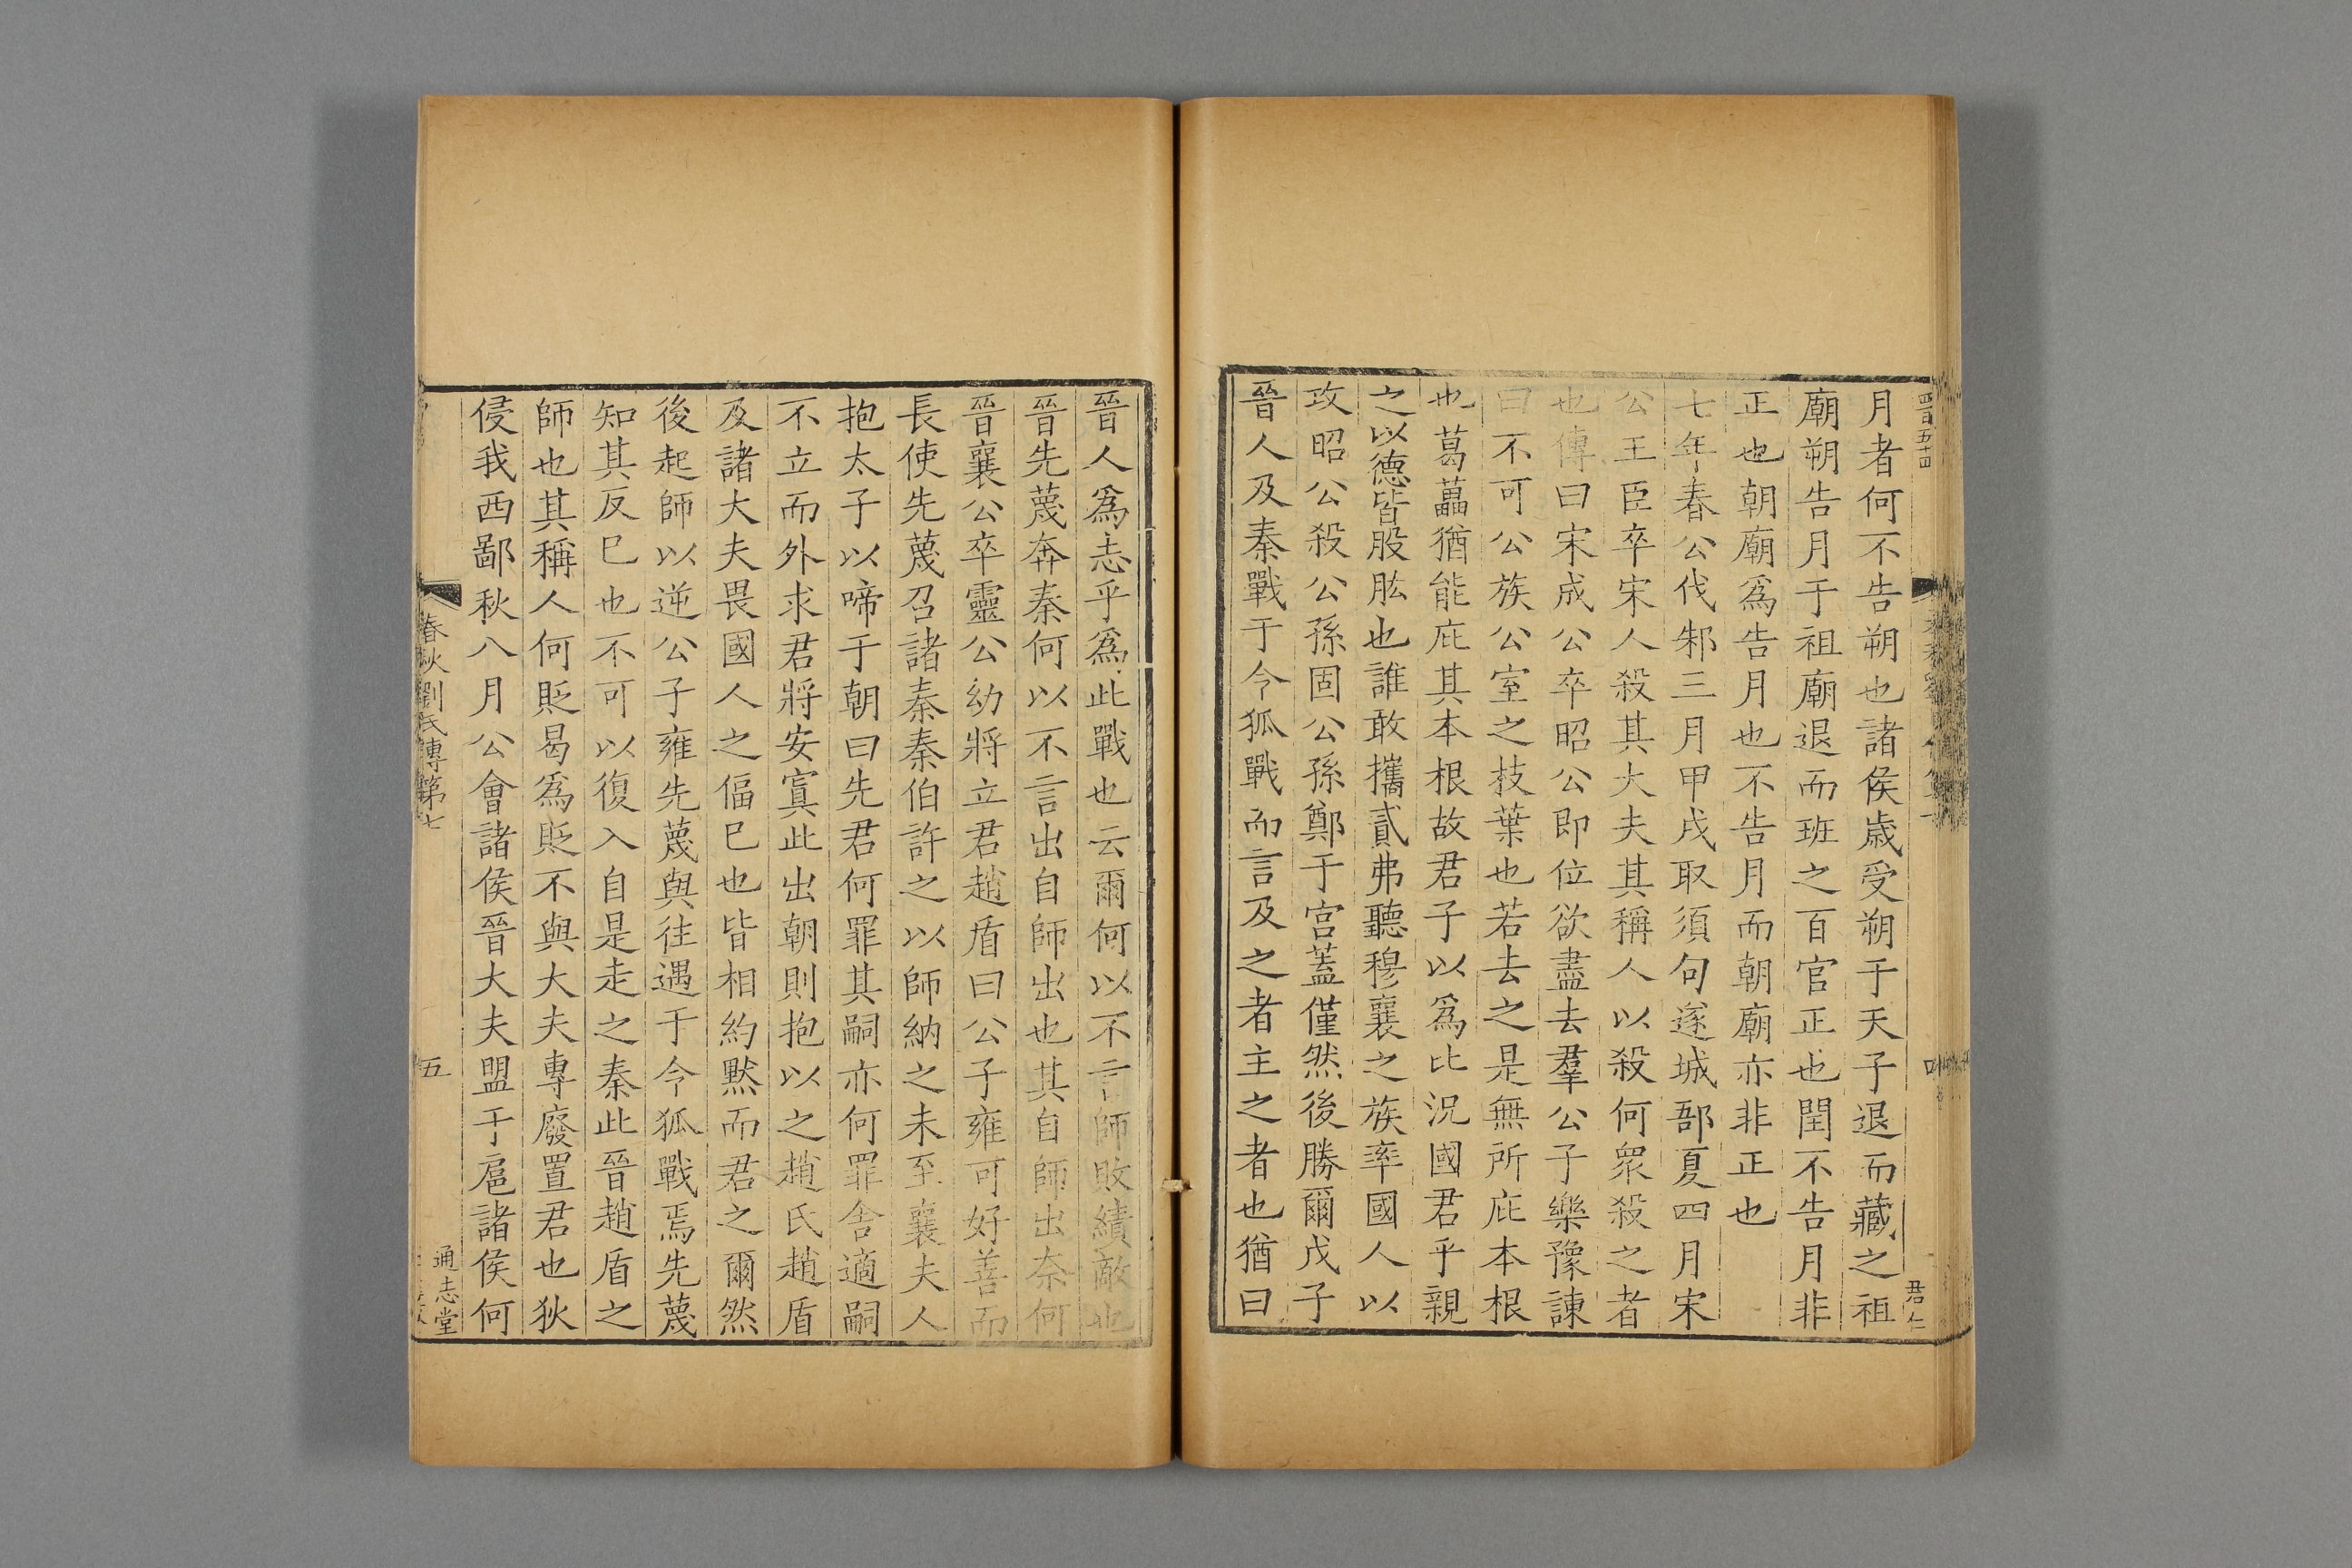 月者何不告朔也諸侯歲受朔于天子退而藏之祖
廟朔告月于祖廟退而班之百官正也閏不告月非
正也朝廟爲告月也不告月而朝廟亦非正也
七年春公伐邾三月甲戌取須句遂城郚夏四月宋
公王臣卒宋人殺其大夫其稱人以殺何衆殺之者
也傳曰宋成公卒昭公即位欲盡去羣公子樂豫諫
曰不可公族公室之枝葉也若去之是無所庇本根
也葛藟猶能庇其本根故君子以爲比況國君乎親
之以德皆股肱也誰敢攜貳弗聽穆襄之族率國人以
攻昭公殺公孫固公孫鄭于宮蓋僅然後勝爾戊子
晉人及秦戰于令狐戰而言及之者主之者也猶曰
君仁
晉人爲志乎爲此戰也云爾何以不言師敗績敵也
晉先蔑奔秦何以不言出自師出也其自師出奈何
晉襄公卒靈公幼將立君趙盾曰公子雍可好善而
長使先蔑召諸秦秦伯許之以師納之未至襄夫人
抱太子以啼于朝曰先君何罪其嗣亦何罪舍適嗣
不立而外求君將安寘此出朝則抱以之趙氏趙盾
及諸大夫畏國人之偪已也皆相約黙而君之爾然
後起師以逆公子雍先蔑與往遇于令狐戰焉先蔑
知其反已也不可以復入自是走之秦此晉趙盾之
師也其稱人何貶曷爲貶不與大夫專廢置君也狄
侵我西鄙秋八月公會諸侯晉大夫盟于扈諸侯何
春秋劉氏傳第七
五
通志堂